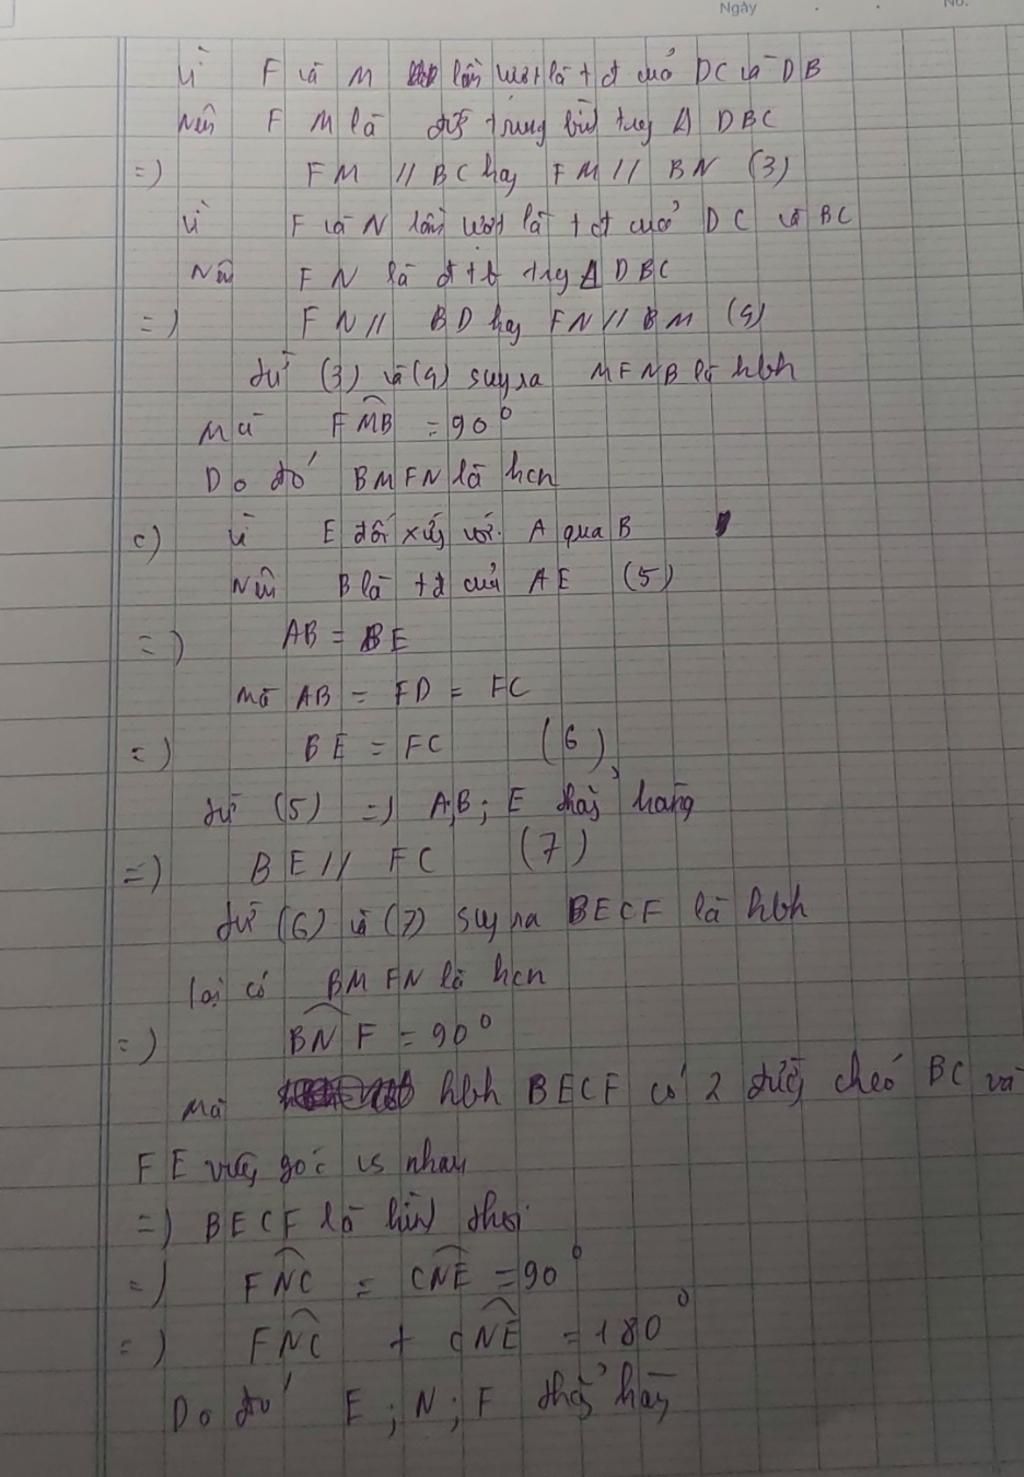 Ngày No.
Vì F và M lần lượt là t đ của DC và DB
Nên F M là đg trung bình trg Δ DBC
=) FM // BC hay FM // BN (3)
Vì F và N lần lượt là t đ của DC và BC
Nên F N là đ t b trg Δ DBC
=) FN // BD hay FN // BM (4)
Từ (3) và (4) suy ra MFNB là hbh
Mà FMB = 90°
Do đó BMFN là hcn
c) Vì E đối xứng với A qua B
Nên B là t đ của AE (5)
=) AB = BE
Mà AB = FD = FC
=) BE = FC (6)
Từ (5) =) A;B; E thẳng hàng
=) BE // FC (7)
Từ (6) và (7) suy ra BECF là hbh
lại có BMFN là hcn
=) BNF = 90°
Mà hbh BECF có 2 đường chéo BC và
FE vuông góc vs nhau
=) BECF là hình thoi
=) FNC = CNE = 90°
=) FNC + CNE = 180°
Do đó E ; N ; F thẳng hàng